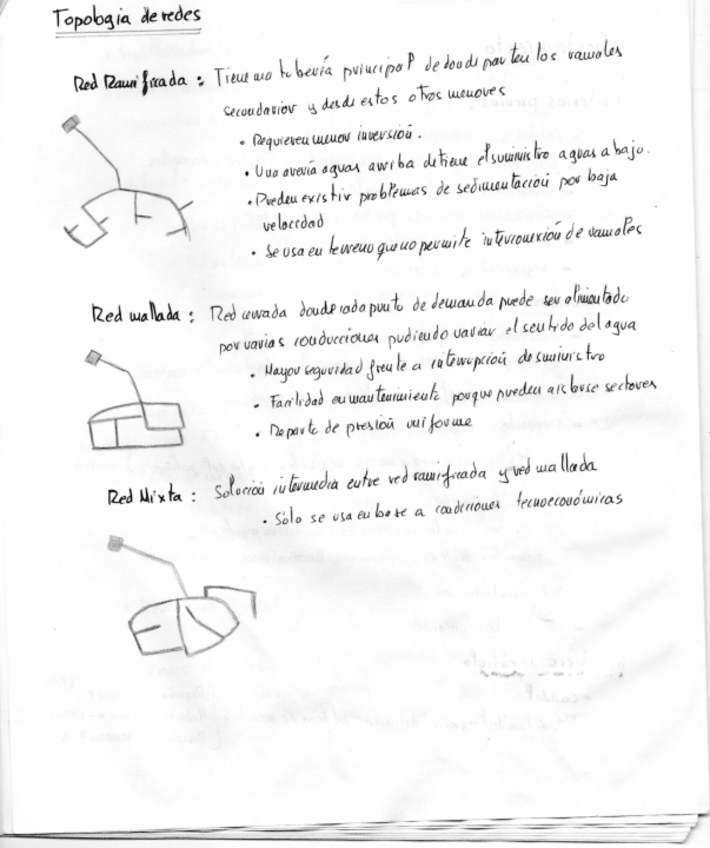 Topología de redes
Red Ramificada : Tiene una tubería principal de donde parten los ramales
secundarios y desde estos otros menores
• Requieren menor inversión.
• Una avería aguas arriba detiene el suministro aguas abajo.
• Pueden existir problemas de sedimentación por baja
velocidad
• Se usa en terreno que no permite interconexión de ramales
Red mallada : Red cerrada donde cada punto de demanda puede ser alimentado
por varias conducciones pudiendo variar el sentido del agua
• Mayor seguridad frente a interrupción de suministro
• Facilidad en mantenimiento porque pueden aislarse sectores
• Reparte de presión uniforme
Red Mixta : Solución intermedia entre red ramificada y red mallada
• Sólo se usa en base a condiciones tecnoeconómicas